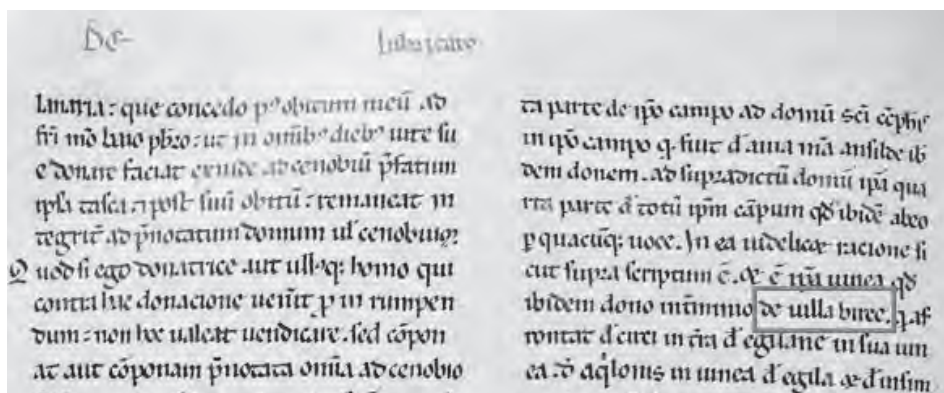 De
Lubricato
Linaria: que concedo pꝰ obitum meū ad
fr̄i mō bno pbr̄o: ut in omībꝰ diebꝰ uite su
e donare faciat exinde ad cenobiū p̄fatum
ipsa tasca. ⁊ post suū obitū: remaneat in
tegrit̄ ad p̄notatum domum ul' cenobiuꝫ:
Quod si ego donatrice aut ullꝰqꝫ homo qui
contra hac donacione uen̄it ꝑ in rumpen
dum: non hoc ualeat uendicare. sed cōpon
at aut cōponam p̄notata om̄ia ad cenobio
ta parte de ip̄o campo ad domū sc̄i
in ip̄o campo q. fuit d' auia mā ansilde ib
dem donem. ad supradictū domū ipā qua
rta parte d' totū ip̄m cāpum qđ ibidē abeo
ꝑ quacūqꝫ uoce. In ea uidelicet racione si
cut supra scriptum ē. et ē uinea qđ
ibidem dono de uilla biree. q. af
rontat d' circi in d' eguane in sua uin
ea. d' aq'lonis in uinea d' egila et d' insim